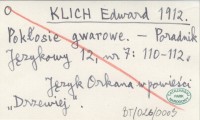 KLICH Edward 1912.
Pokłosie gwarowe. – Poradnik
Językowy 12, nr 7: 110-112.
Język Orkana w powieści
„Drzewiej".
BT/026/0005